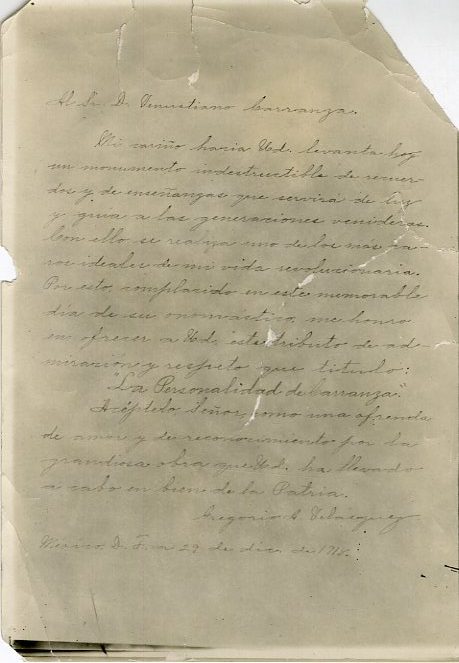 Al Sr. D. Venustiano Carranza.
Mi cariño hacia Ud. levanta hoy
un monumento indestructible de recuer-
dos y de enseñanzas que servirá de luz
y guía a las generaciones venideras.
Con ello se realiza uno de los mas ca-
ros ideales de mi vida revolucionaria.
Por esto, complacido en este memorable
día de su onomástico, me honro
en ofrecer a Ud. este tributo de ad-
miración y respeto que titulo:
"La Personalidad de Carranza."
Acéptelo Señor, como una ofrenda
de amor y de reconocimiento por la
grandiosa obra que Ud. ha llevado
a cabo en bien de la Patria.
Gregorio A Velazquez
México, D. F. a 29 de dic. de